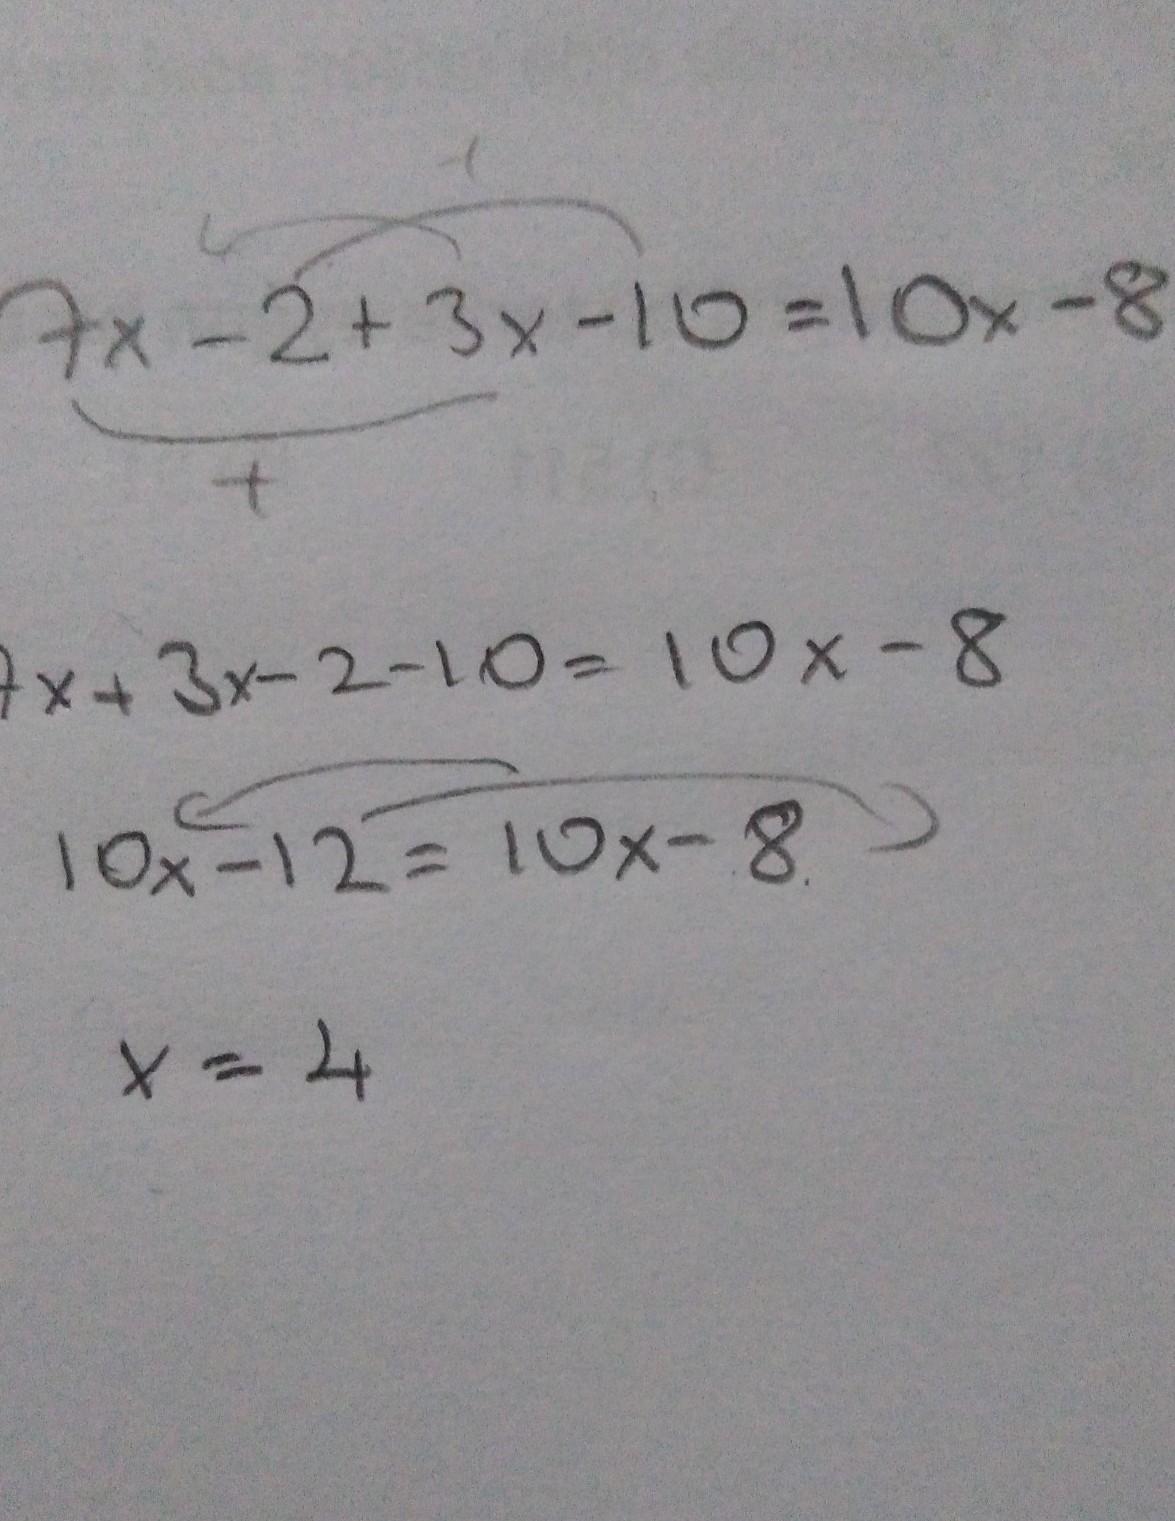 +
7x - 2 + 3x - 10 = 10x - 8
+
7x + 3x - 2 - 10 = 10x - 8
10x - 12 = 10x - 8
x = 4